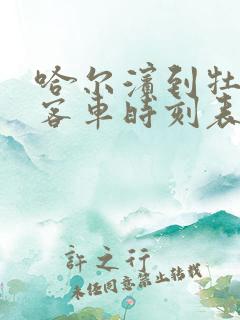 哈尔滨到牡
客车时刻表
許之行
未经同意禁止转载